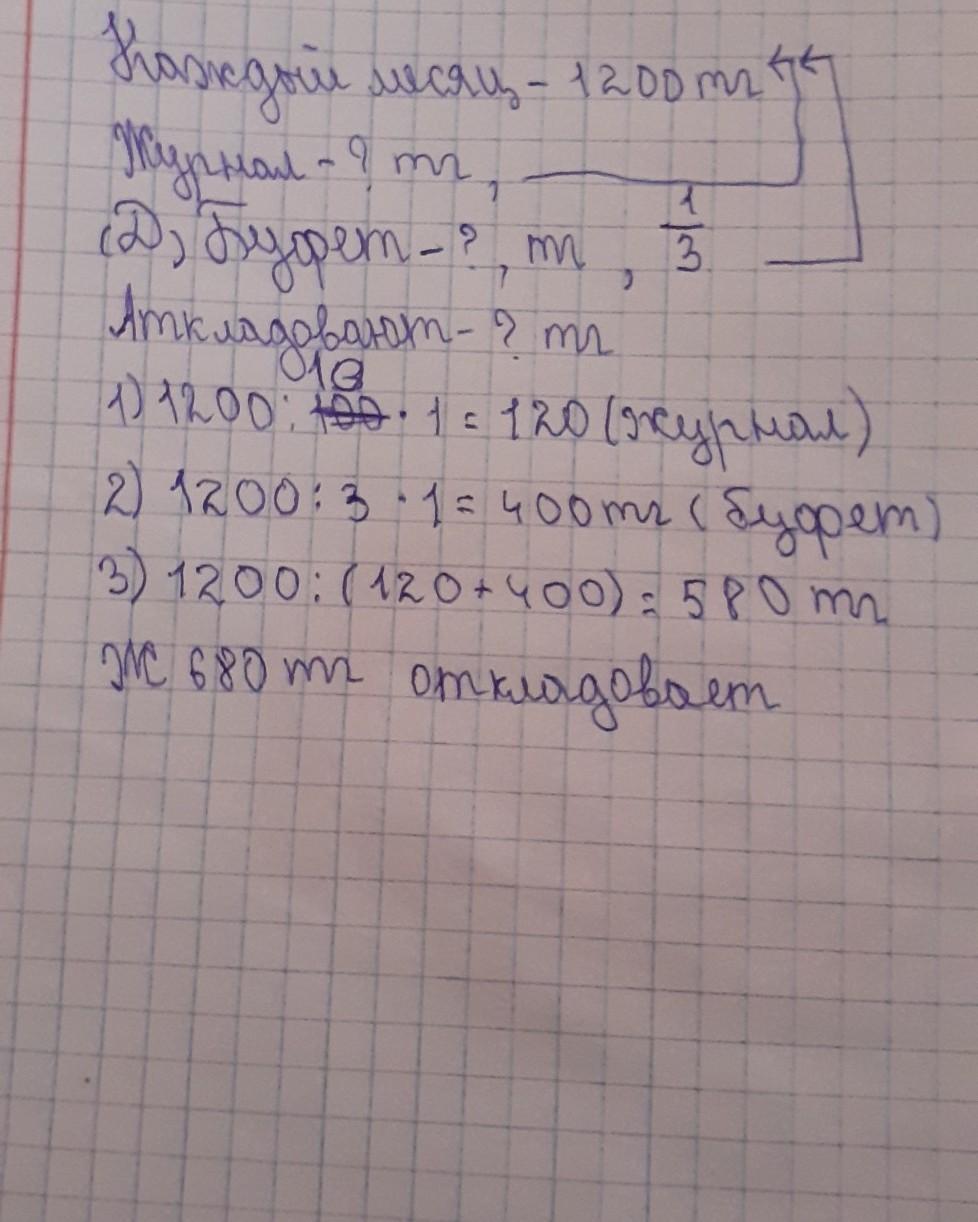 Каждый месяц - 1200 тг
Журнал - ? тг,
(Д), Буфет - ?, т, 1/3
Аткладовают - ? тг
1) 1200 : 10 · 1 = 120 (журнал)
2) 1200 : 3 · 1 = 400 тг (буфет)
3) 1200 : (120 + 400) = 580 тг
Ж 680 тг откладовает